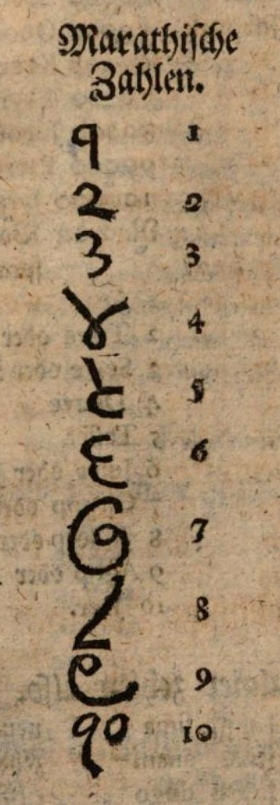 Marathiſche
Zahlen.
१ 1
२ 2
३ 3
४ 4
५ 5
६ 6
७ 7
८ 8
९ 9
१० 10